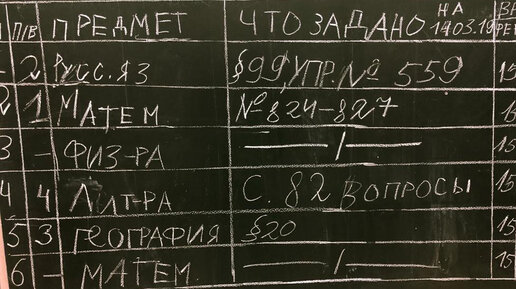 П/В ПРЕДМЕТ ЧТО ЗАДАНО НА 14.03.19
2 РУСС.ЯЗ §99, УПР.№ 559 15
2 1 МАТЕМ №824-827 15
3 - ФИЗ-РА —/— 15
4 4 ЛИТ-РА С. 82 ВОПРОСЫ 15
5 3 ГЕОГРАФИЯ §20 15
6 - МАТЕМ —/— 15